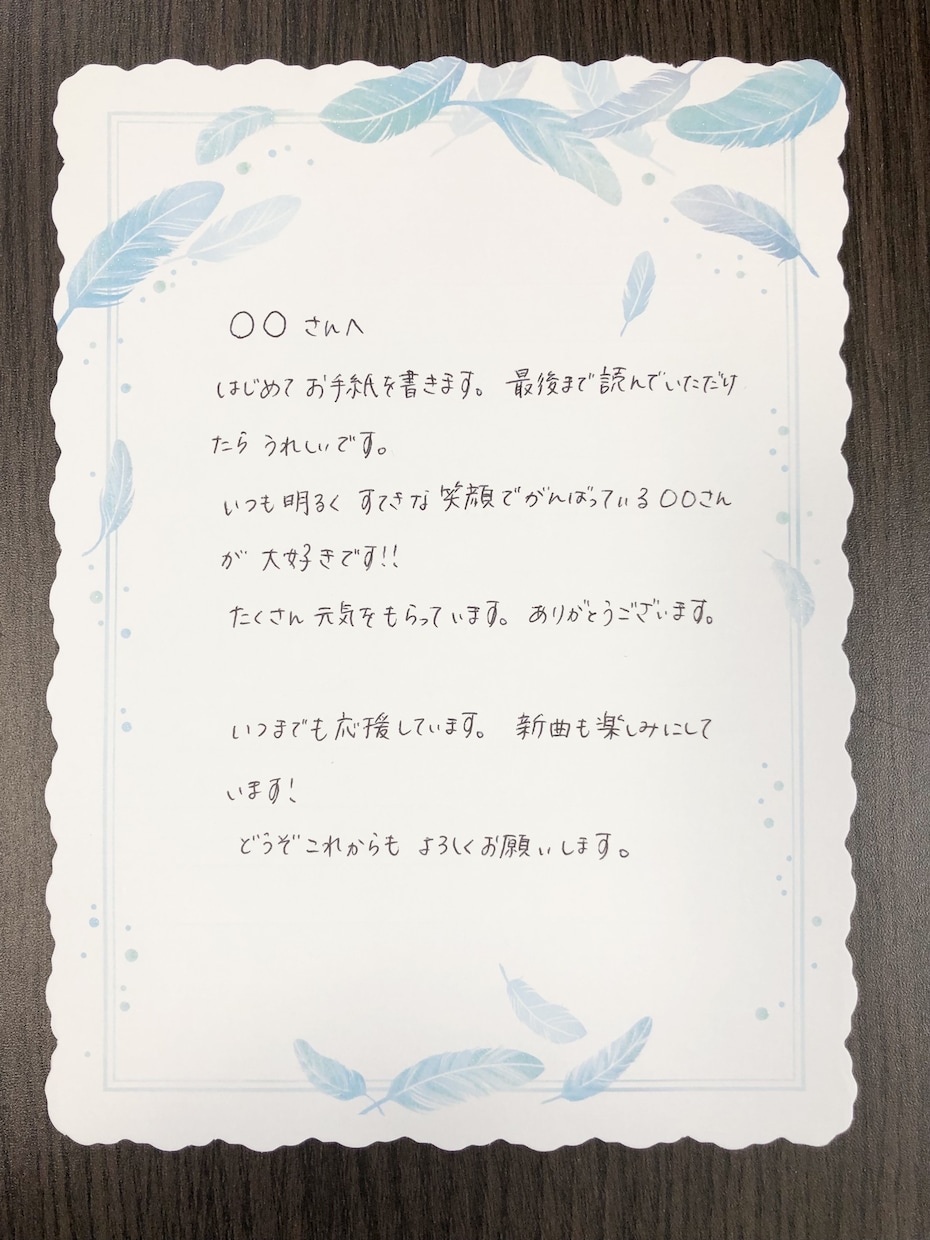 ○○ さんへ
はじめて お手紙を書きます。 最後まで読んでいただけ
たら うれしいです。
いつも 明るく すてきな 笑顔でがんばっている○○さん
が 大好きです!!
たくさん 元気をもらっています。 ありがとうございます。
いつまでも応援しています。 新曲も楽しみにして
います!
どうぞこれからも よろしくお願いします。